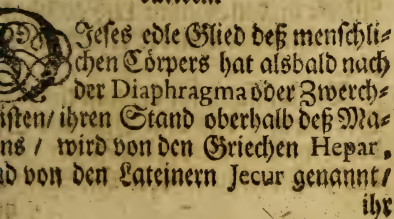 Dieses edle Glied deß menschli⸗
chen Cörpers hat alsbald nach
der Diaphragma oder Zwerch⸗
isten / ihren Stand oberhalb deß Ma⸗
ns / wird von den Griechen Hepar,
nd von den Lateinern Jecur genannt /
ihr